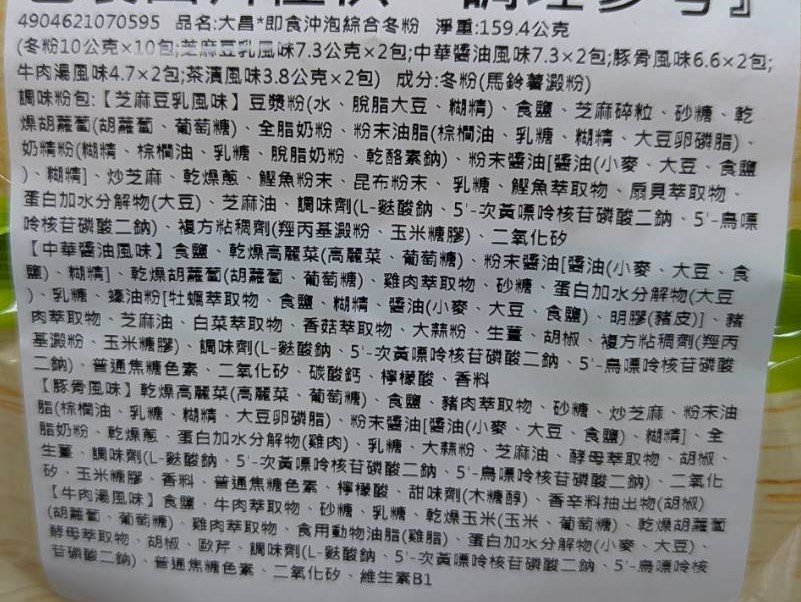 4904621070595 品名:大昌*即食沖泡綜合冬粉 淨重:159.4公克
(冬粉10公克×10包;芝麻豆乳風味7.3公克×2包;中華醬油風味7.3×2包;豚骨風味6.6×2包;
牛肉湯風味4.7×2包;茶漬風味3.8公克×2包) 成分:冬粉(馬鈴薯澱粉)
調味粉包:【芝麻豆乳風味】豆漿粉(水、脫脂大豆、糊精)、食鹽、芝麻碎粒、砂糖、乾
燥胡蘿蔔(胡蘿蔔、葡萄糖)、全脂奶粉、粉末油脂(棕櫚油、乳糖、糊精、大豆卵磷脂)、
奶精粉(糊精、棕櫚油、乳糖、脫脂奶粉、乾酪素鈉)、粉末醬油[醬油(小麥、大豆、食鹽
)、糊精]、炒芝麻、乾燥蔥、鰹魚粉末、昆布粉末、乳糖、鰹魚萃取物、扇貝萃取物、
蛋白加水分解物(大豆)、芝麻油、調味劑(L-麩酸鈉、5'-次黃嘌呤核苷磷酸二鈉、5'-鳥嘌
呤核苷磷酸二鈉)、複方粘稠劑(羥丙基澱粉、玉米糖膠)、二氧化矽
【中華醬油風味】食鹽、乾燥高麗菜(高麗菜、葡萄糖)、粉末醬油[醬油(小麥、大豆、食
鹽)、糊精]、乾燥胡蘿蔔(胡蘿蔔、葡萄糖)、雞肉萃取物、砂糖、蛋白加水分解物(大豆
)、乳糖、蠔油粉[牡蠣萃取物、食鹽、糊精、醬油(小麥、大豆、食鹽)、明膠(豬皮)]、豬
肉萃取物、芝麻油、白菜萃取物、香菇萃取物、大蒜粉、生薑、胡椒、複方粘稠劑(羥丙
基澱粉、玉米糖膠)、調味劑(L-麩酸鈉、5'-次黃嘌呤核苷磷酸二鈉、5'-鳥嘌呤核苷磷酸
二鈉)、普通焦糖色素、二氧化矽、碳酸鈣、檸檬酸、香料
【豚骨風味】乾燥高麗菜(高麗菜、葡萄糖)、食鹽、豬肉萃取物、砂糖、炒芝麻、粉末油
脂(棕櫚油、乳糖、糊精、大豆卵磷脂)、粉末醬油[醬油(小麥、大豆、食鹽)、糊精]、全
脂奶粉、乾燥蔥、蛋白加水分解物(雞肉)、乳糖、大蒜粉、芝麻油、酵母萃取物、胡椒、
生薑、調味劑(L-麩酸鈉、5'-次黃嘌呤核苷磷酸二鈉、5'-鳥嘌呤核苷磷酸二鈉)、二氧化
矽、玉米糖膠、香料、普通焦糖色素、檸檬酸、甜味劑(木糖醇)、香辛料抽出物(胡椒)
【牛肉湯風味】食鹽、牛肉萃取物、砂糖、乳糖、乾燥玉米(玉米、葡萄糖)、乾燥胡蘿蔔
(胡蘿蔔、葡萄糖)、雞肉萃取物、食用動物油脂(雞脂)、蛋白加水分解物(小麥、大豆)、
酵母萃取物、胡椒、歐芹、調味劑(L-麩酸鈉、5'-次黃嘌呤核苷磷酸二鈉、5'-鳥嘌呤核
苷磷酸二鈉)、普通焦糖色素、二氧化矽、維生素B1